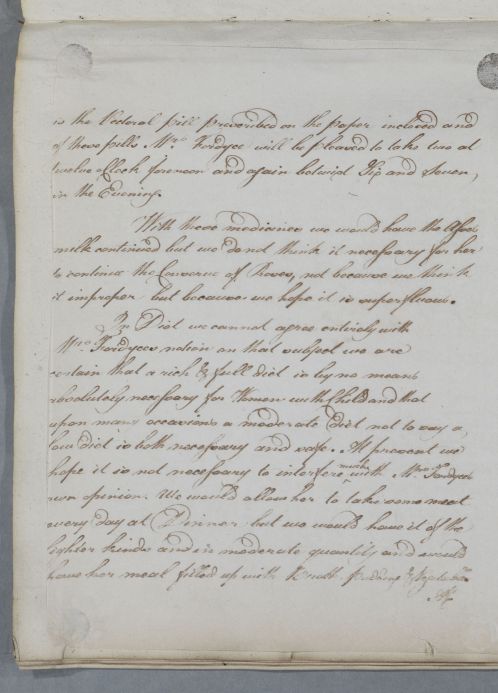 is the Pectoral pill prescribed on the paper inclosed and
of these pills Mrs. Fordyce will be pleased to take two at
twelve o'Clock forenoon and again betwixt Six and Seven,
in the Evening.
With these medicines we would have the Asses
milk continued but we do not think it necessary for her
to continue the Conserve of Roses, not because we think
it improper but because we hope it is superfluous.
In Diet we cannot agree entirely with
Mrs. Fordyces notion on that subject we are
certain that a rich & full diet is by no means
absolutely necessary for Women with Child and that
upon many occasions a moderate Diet not to say a,
low diet is both necessary and safe. At present we
hope it is not necessary to interfere much with Mrs. Fordyces
own opinion. We would allow her to take some meat
every day at Dinner but we would have it of the
lighter kinds and in moderate quantity and would
have her meal filled up with Broth, pudding & Vegetables